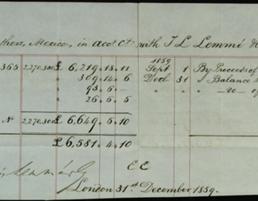 thers, Mexico, in acct Ct. with J L Lemmé
365 2270.300 £ 6,219.15.11 1859 Sept 1 By Proceeds of
309.14.6 Decr 31 " Balance
93.6.-
26.6.5
No 2270.300 £ 6,649.5.10
£ 6,581.4.10
E E
London 31st December 1859.